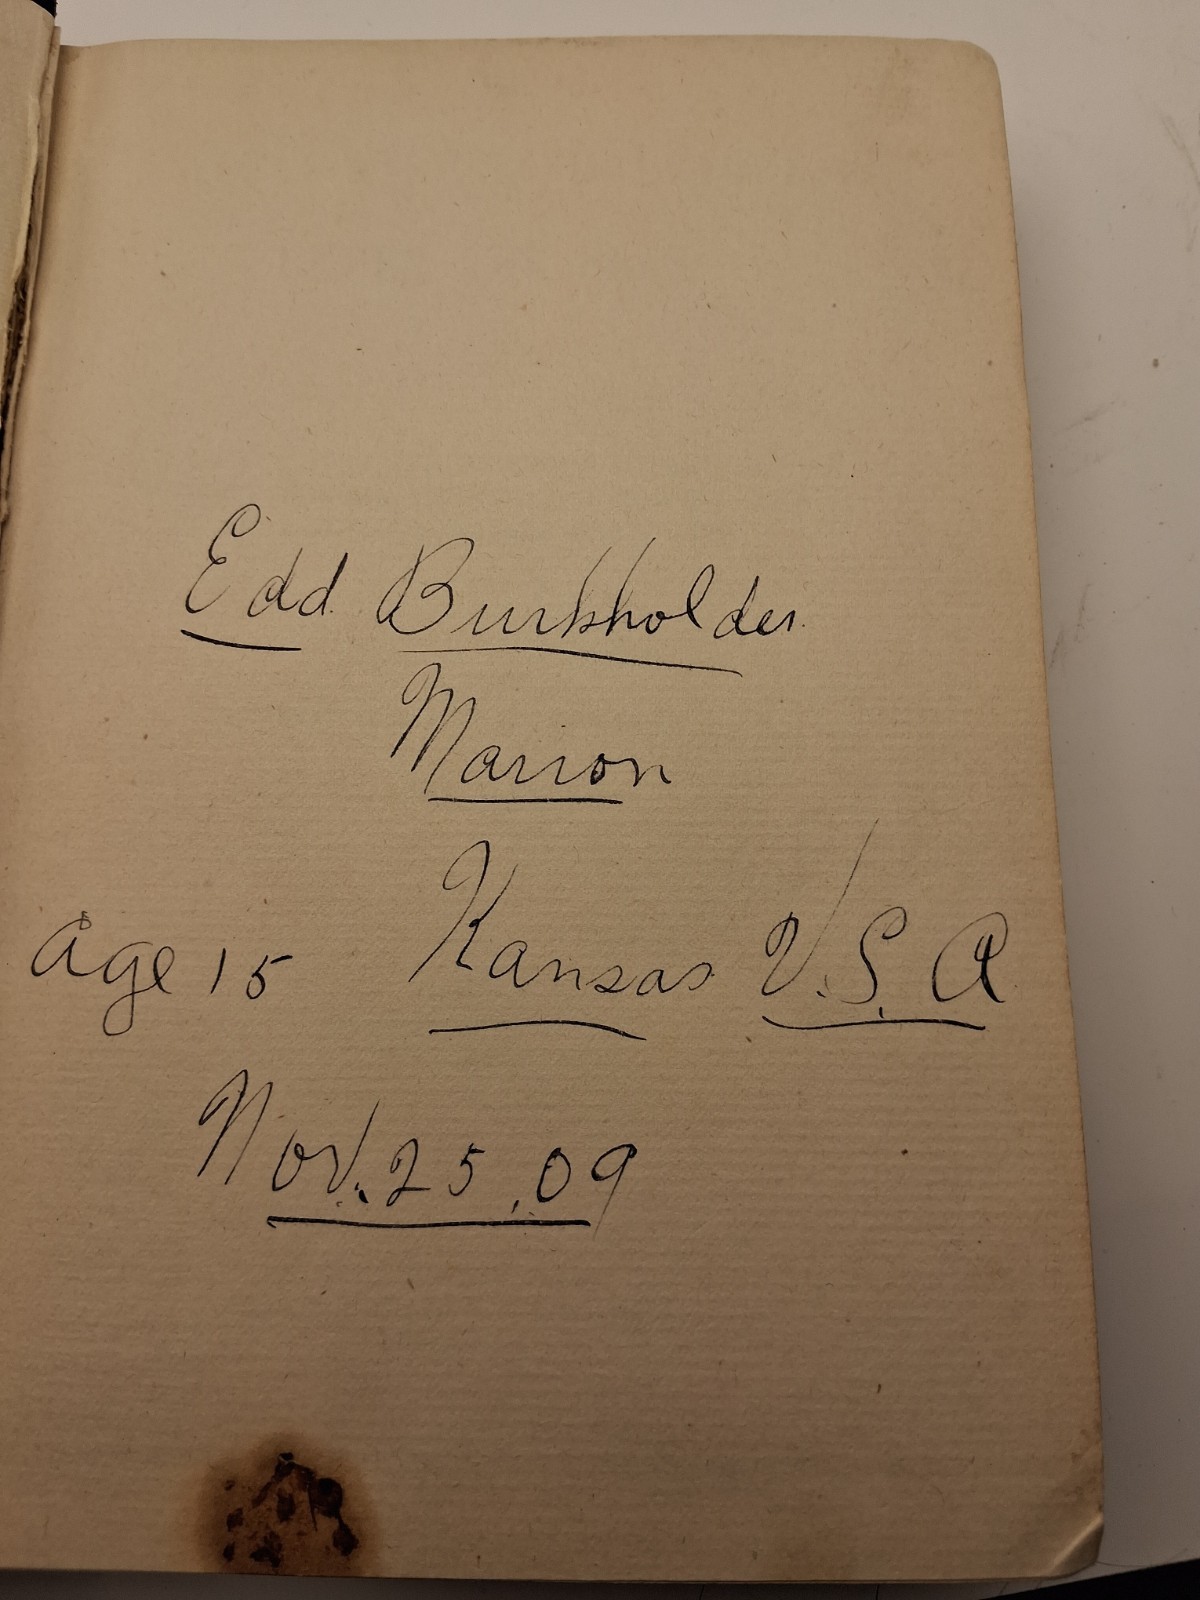 Edd Burkholder
Marion
age 15 Kansas U.S.A
Nov. 25, 09